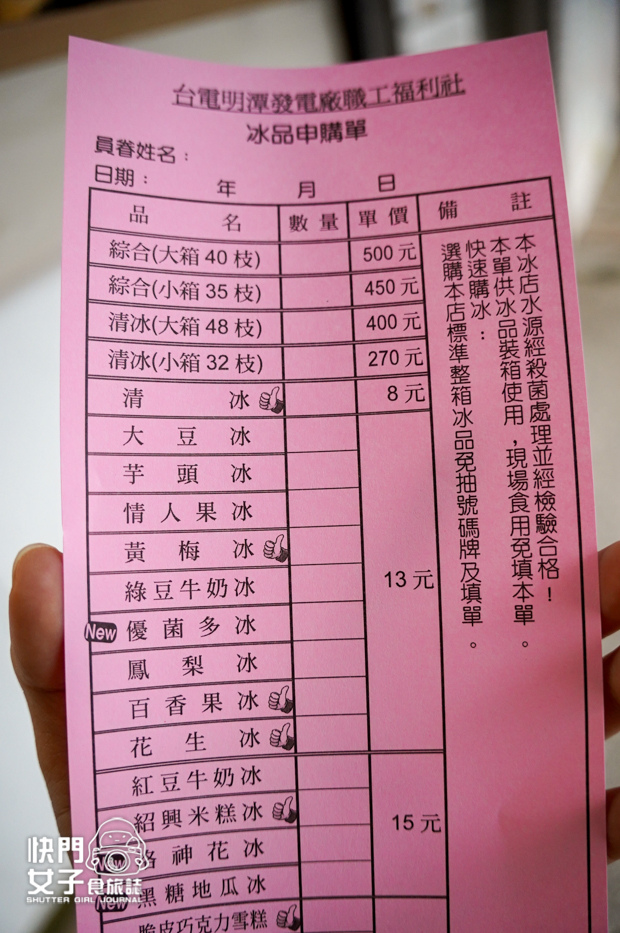 台電明潭發電廠職工福利社
冰品申購單
員眷姓名：
日期： 年 月 日
品名 數量 單價 備註
綜合(大箱40枝) 500元
綜合(小箱35枝) 450元
清冰(大箱48枝) 400元
清冰(小箱32枝) 270元
清冰 8元
大豆冰
芋頭冰
情人果冰
黃梅冰
綠豆牛奶冰 13元
New 優菌多冰
鳳梨冰
百香果冰
花生冰
紅豆牛奶冰
紹興米糕冰 15元
New 洛神花冰
New 黑糖地瓜冰
脆皮巧克力雪糕
本冰店水源經殺菌處理並經檢驗合格！
本單供冰品裝箱使用，現場食用免填本單。
快速購冰：
選購本店標準整箱冰品免抽號碼牌及填單。
快門
女子食旅誌
SHUTTER GIRL JOURNAL